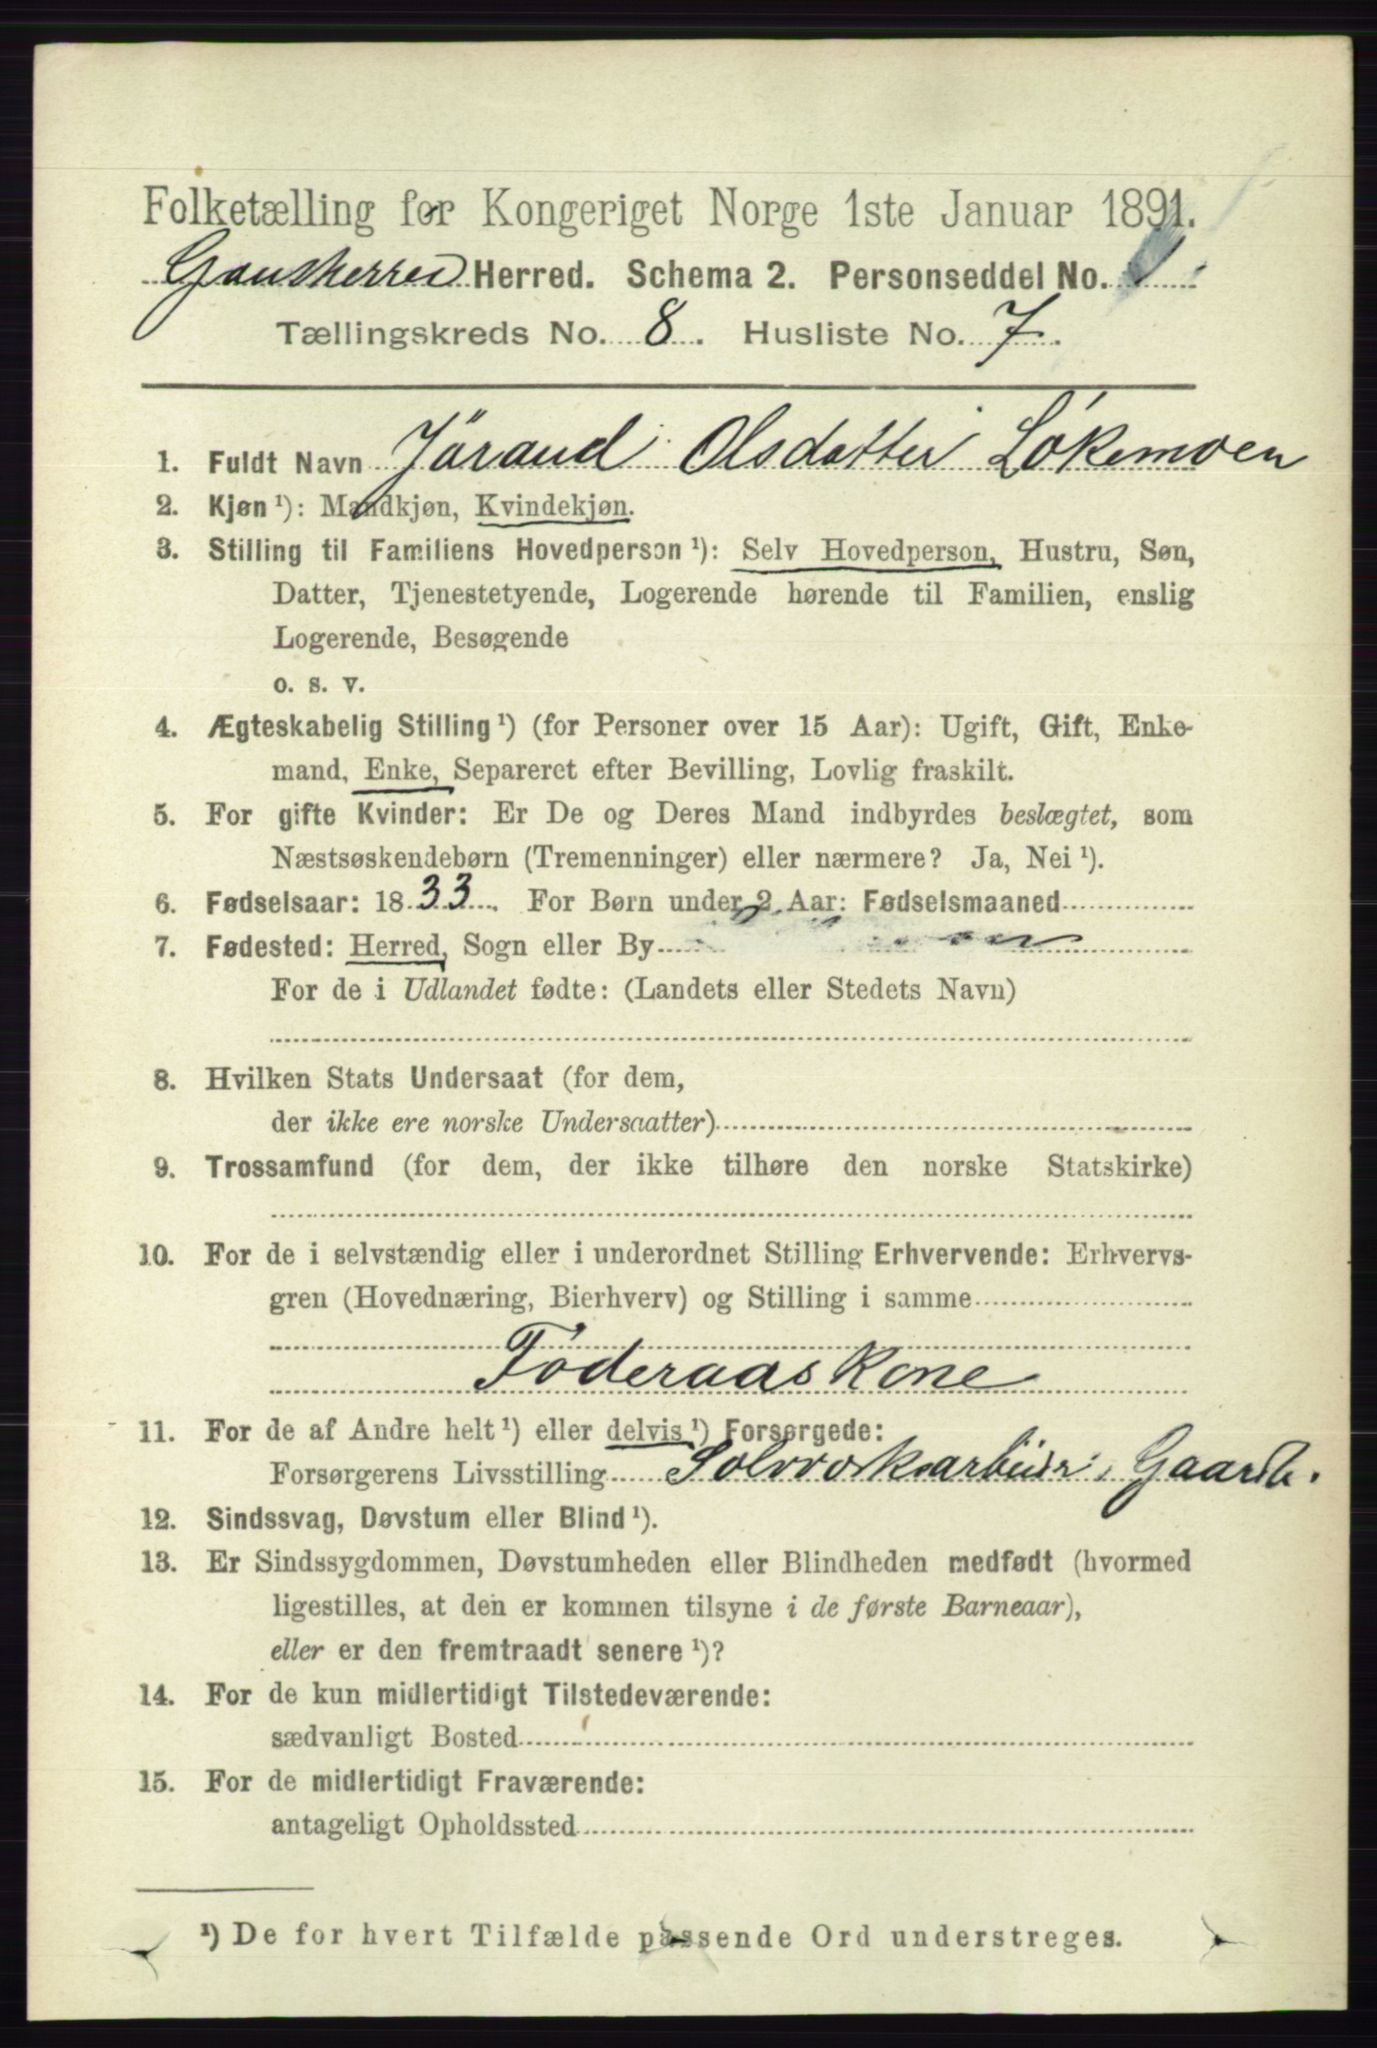 Folketælling for Kongeriget Norge 1ste Januar 1891.
Gausherred Herred. Schema 2. Personseddel No. 1
Tællingskreds No. 8. Husliste No. 7.
1. Fuldt Navn Jörand Olsdatter Lökemoen
2. Kjøn ¹): Mandkjøn, Kvindekjøn.
3. Stilling til Familiens Hovedperson ¹): Selv Hovedperson, Hustru, Søn,
Datter, Tjenestetyende, Logerende hørende til Familien, enslig
Logerende, Besøgende
o. s. v.
4. Ægteskabelig Stilling ¹) (for Personer over 15 Aar): Ugift, Gift, Enke-
mand, Enke, Separeret efter Bevilling, Lovlig fraskilt.
5. For gifte Kvinder: Er De og Deres Mand indbyrdes beslægtet, som
Næstsøskendebørn (Tremenninger) eller nærmere? Ja, Nei ¹).
6. Fødselsaar: 1833. For Børn under 2 Aar: Fødselsmaaned
7. Fødested: Herred, Sogn eller By
For de i Udlandet fødte: (Landets eller Stedets Navn)
8. Hvilken Stats Undersaat (for dem,
der ikke ere norske Undersaatter)
9. Trossamfund (for dem, der ikke tilhøre den norske Statskirke)
10. For de i selvstændig eller i underordnet Stilling Erhvervende: Erhvervs-
gren (Hovednæring, Bierhverv) og Stilling i samme
Föderaaskone
11. For de af Andre helt ¹) eller delvis ¹) Forsørgede:
Forsørgerens Livsstilling Solvverksarbeider, Gaardb.
12. Sindssvag, Døvstum eller Blind ¹).
13. Er Sindssygdommen, Døvstumheden eller Blindheden medfødt (hvormed
ligestilles, at den er kommen tilsyne i de første Barneaar),
eller er den fremtraadt senere ¹)?
14. For de kun midlertidigt Tilstedeværende:
sædvanligt Bosted
15. For de midlertidigt Fraværende:
antageligt Opholdssted
¹) De for hvert Tilfælde passende Ord understreges.